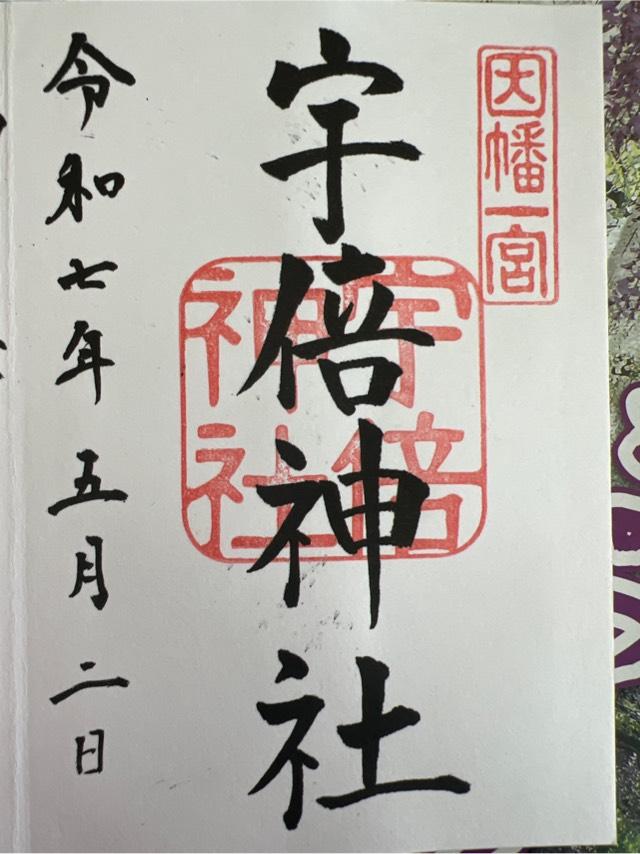 因幡一宮
宇倍神社
宇倍神社
令和七年五月二日